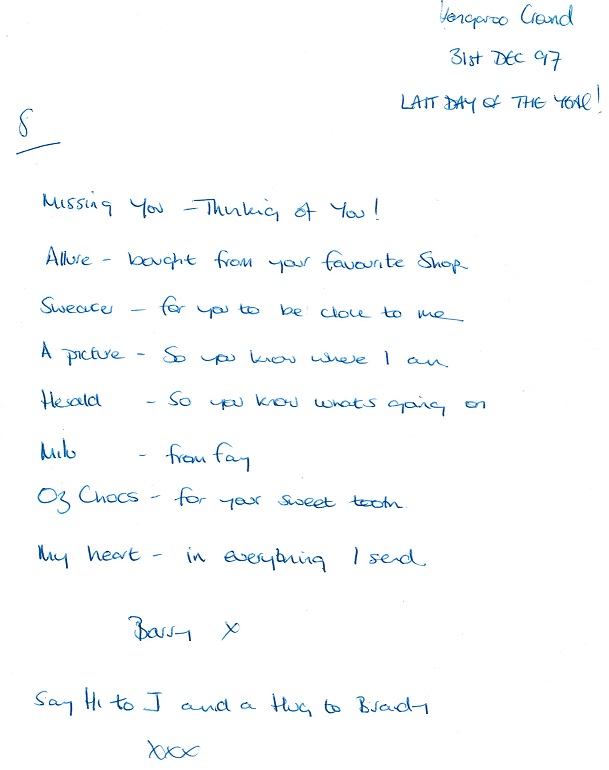 Kangaroo Ground
31st DEC 97
LAST DAY OF THE YEAR!
S
Missing You - Thinking of You!
Allure - bought from your favourite Shop
Sweater - for you to be close to me
A picture - So you know where I am
Herald - So you know whats going on
Milo - from Fay
Oz Chocs - for your sweet tooth
My heart - in everything I send
Barry x
Say Hi to J and a Hug to Brady
xxx